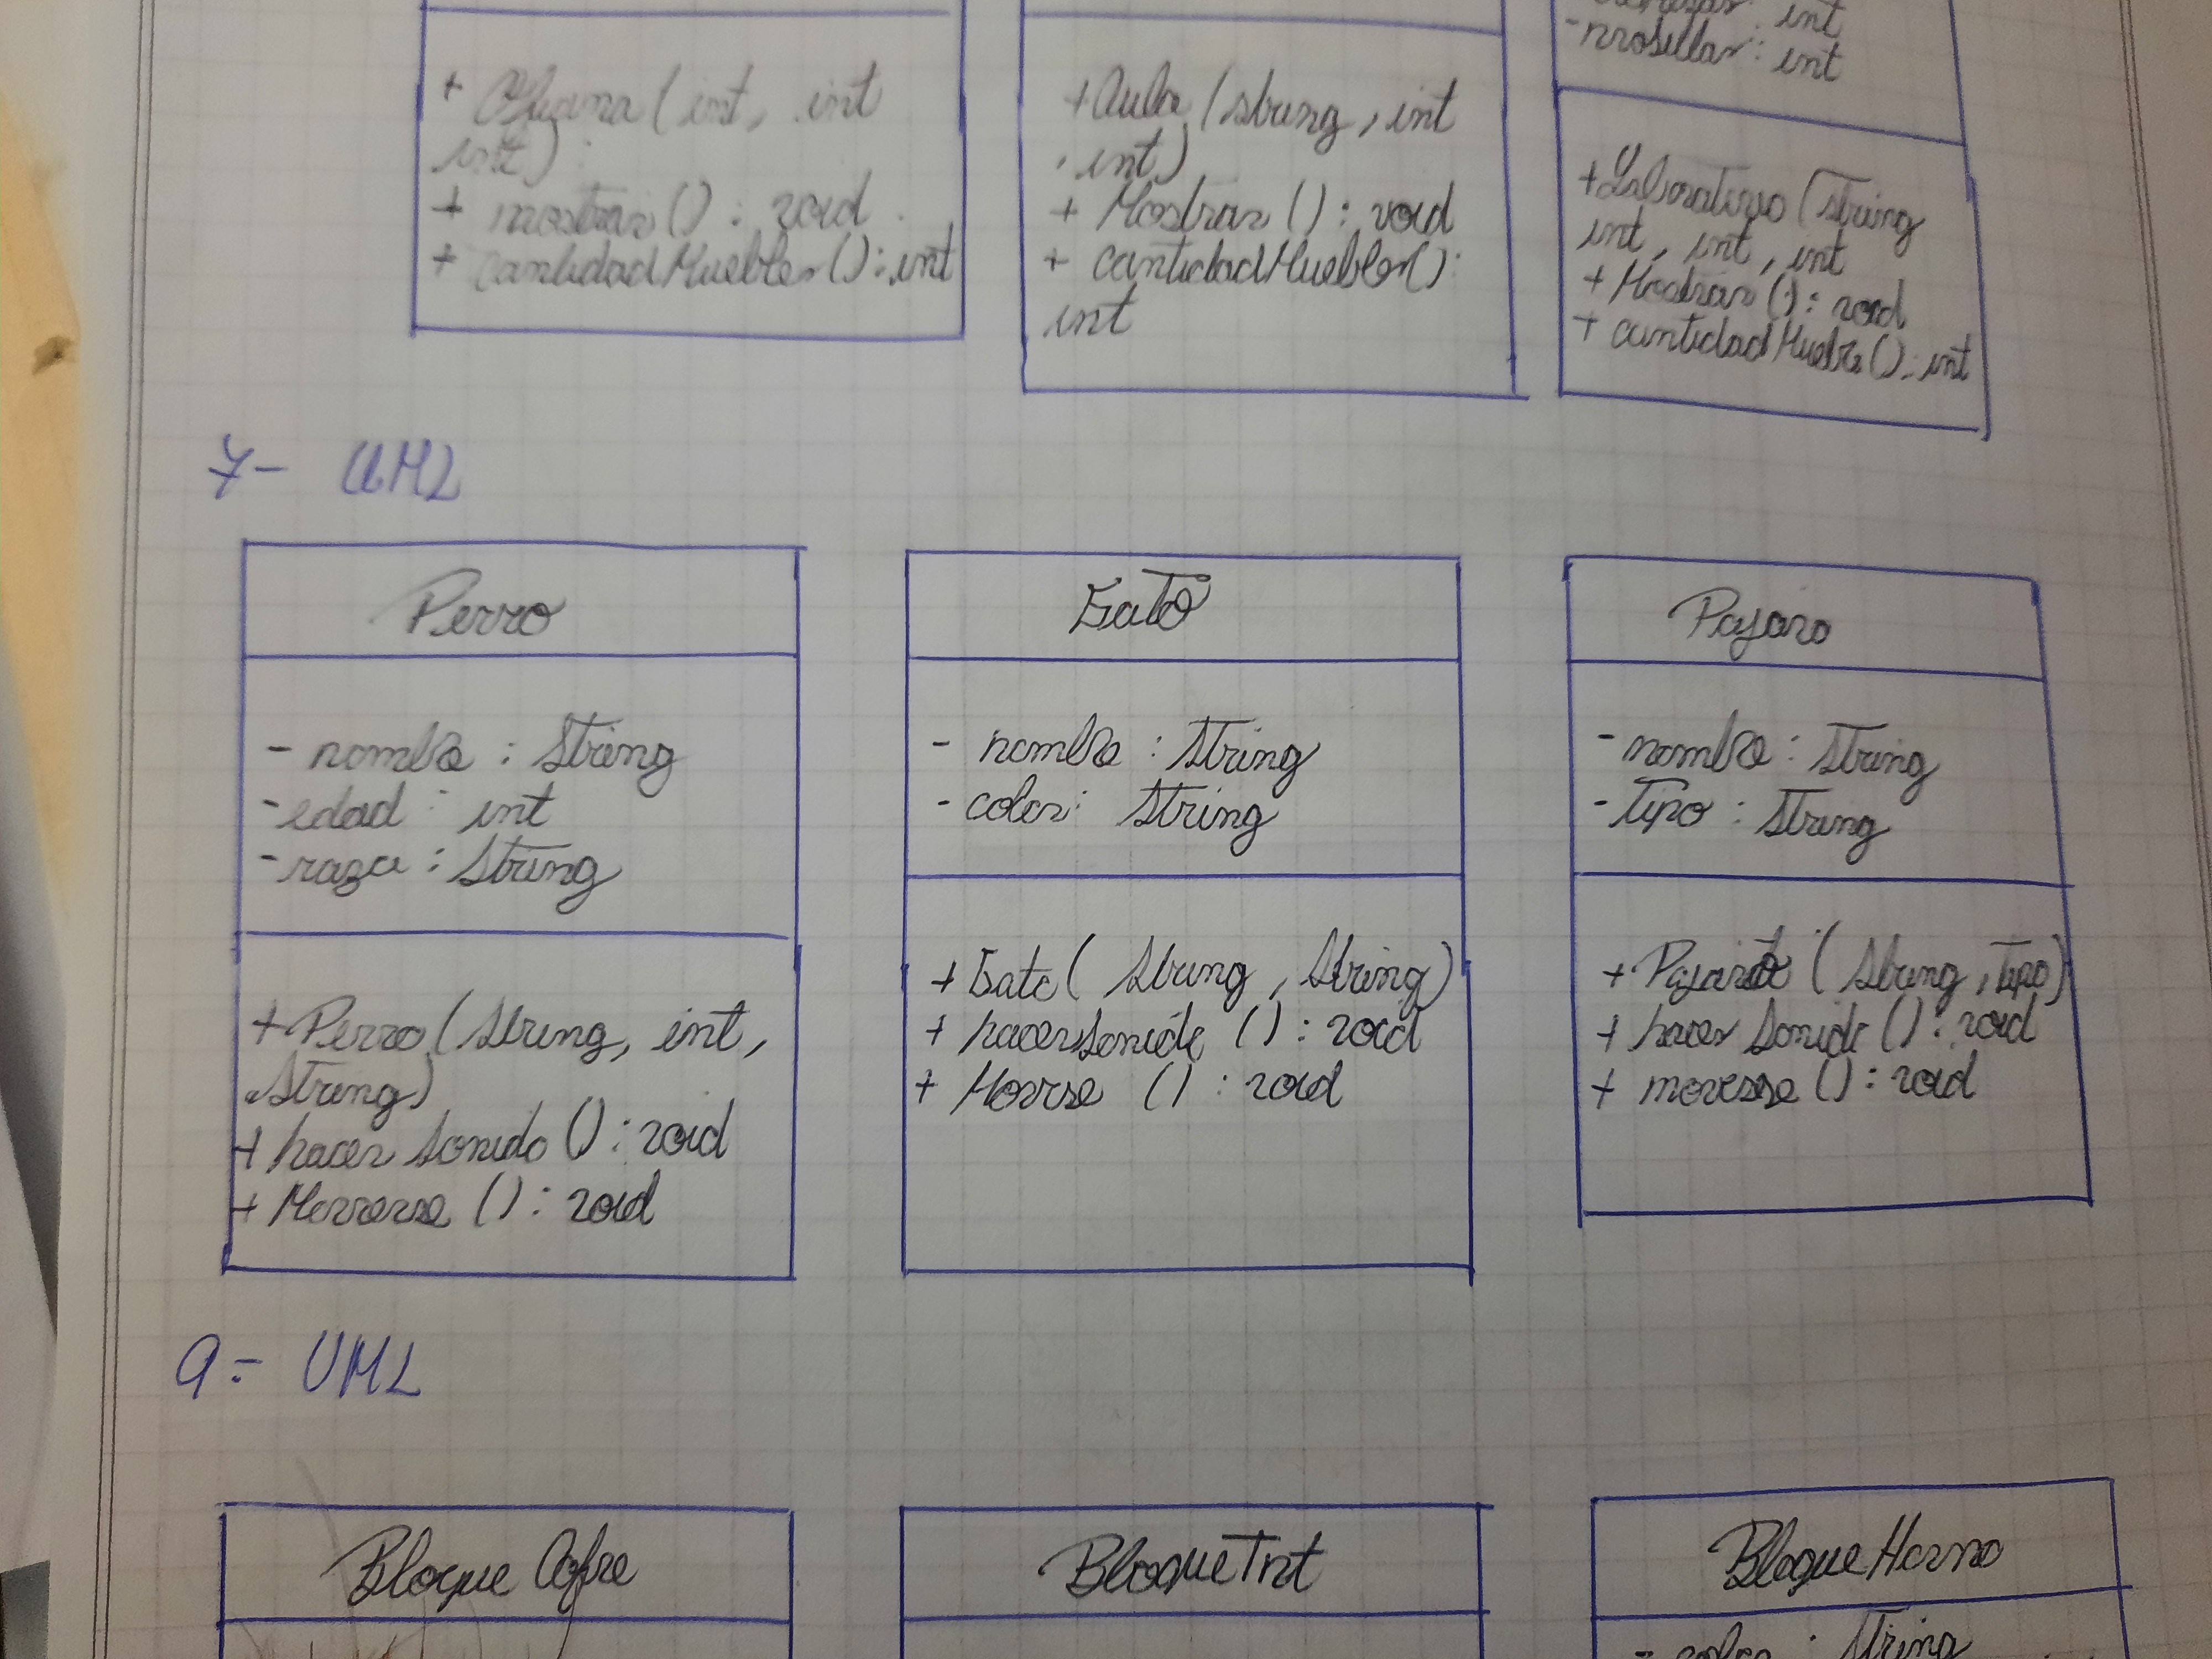 - mosillar : int
+ (int, int
int)
+ mostrar () : void
+ cantidadMuebles () : int
+ Aula (String, int
, int)
+ Mostrar () : void
+ cantidadMuebles () :
int
+ Laboratiyo (String
int, int, int
+ Mostrar () : void
+ cantidadMuebles () : int
7- UML
Perro
- nombre : String
- edad : int
- raza : String
+ Perro (String, int,
String)
+ hacer Sonido () : void
+ Moverse () : void
Gato
- nombre : String
- color : String
+ Gato ( String, String)
+ hacerSonido () : void
+ Moverse () : void
Pajaro
- nombre : String
- tipo : String
+ Pajarito (String, tipo)
+ hacer Sonido () : void
+ moverse () : void
9 = UML
Bloque Cofre
Bloque Tnt
Bloque Horno
- color : String